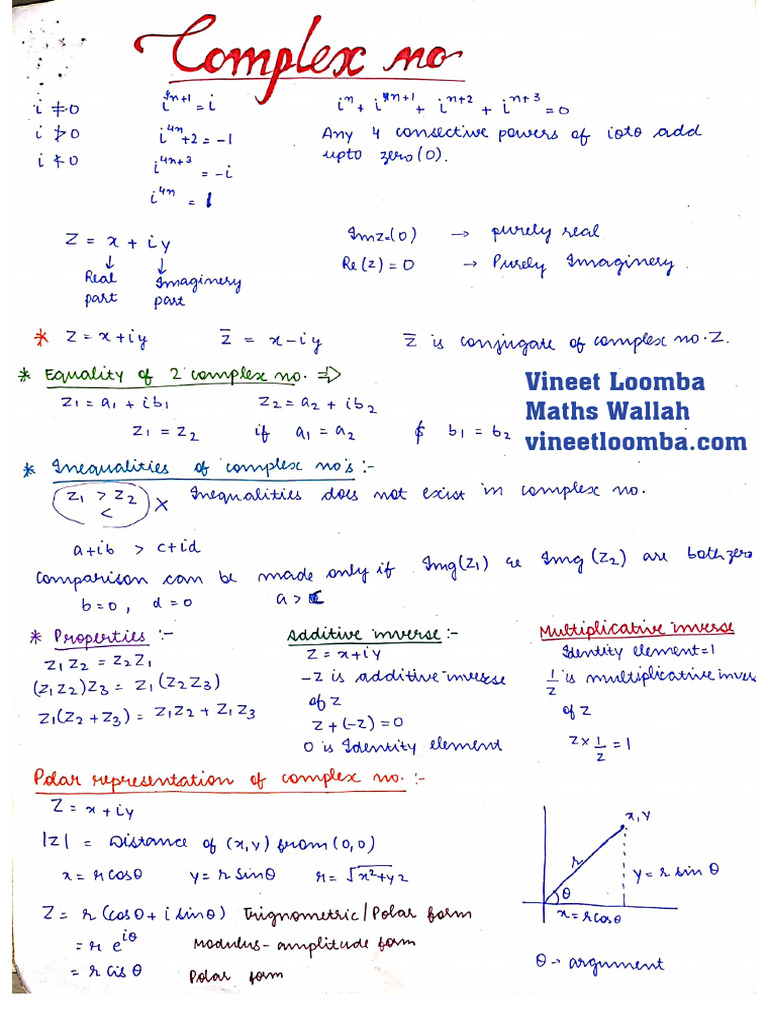 Complex no
i ≠ 0
i ≯ 0
i ≮ 0
i^{4n+1} = i
i^{4n}+2 = -1
i^{4n+3} = -i
i^{4n} = 1
i^n + i^{n+1} + i^{n+2} + i^{n+3} = 0
Any 4 consective powers of ioto add
upto zero(0).
Z = x + iy
↓ ↓
Real Imaginery
part part
Imz=(0) → purely real
Re(z) = 0 → Purely Imaginery.
* Z = x+iy z̄ = x-iy z̄ is conjugate of complex no. Z.
* Equality of 2 complex no. ⇒
z1 = a1 + ib1 z2 = a2 + ib2
z1 = z2 if a1 = a2 & b1 = b2
Vineet Loomba
Maths Wallah
vineetloomba.com
* Inequalities of complex no's :-
z1 > z2 × Inequalities does not exist in complex no.
<
a+ib > c+id
comparison can be made only if Img(z1) Img(z2) are both zero
b=0, d=0 a>c
* Properties :-
z1z2 = z2z1
(z1z2)z3 = z1(z2z3)
z1(z2+z3) = z1z2 + z1z3
Additive inverse :-
Z = x+iy
-z is additive inverse
of z
z+(-z) = 0
0 is Identity element
Multiplicative inverse
Identity element=1
1/z is multiplicative inver
of z
z × 1/z = 1
Polar representation of complex no. :-
Z = x+iy
|z| = Distance of (x,y) from (0,0)
x = r cosθ y = r sinθ r = √x²+y2
Z = r(cosθ + i sinθ) Trignometric/Polar form
= r e^{iθ} Modulus-amplitude form
= r cis θ Polar form
x,y
r
θ
y = r sin θ
x = r cosθ
θ → argument